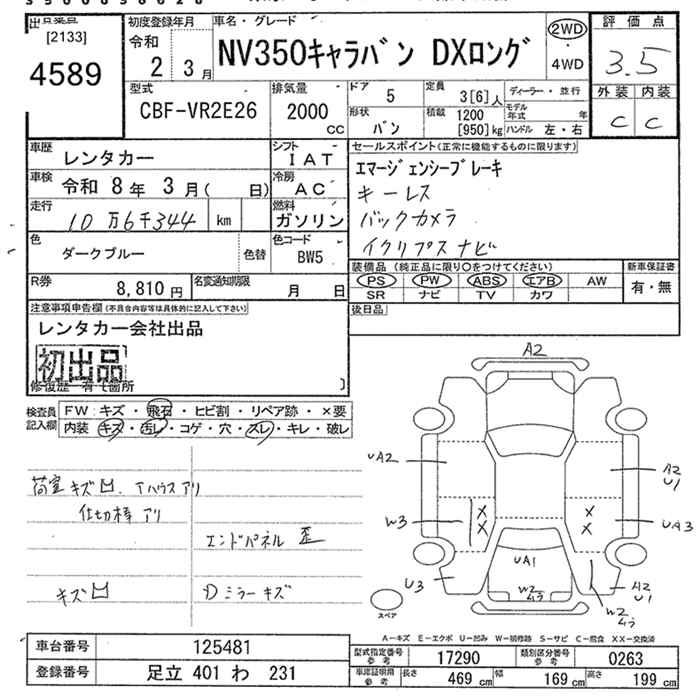 出品番号
[2133]
4589
初度登録年月
令和
2 3月
車名・グレード
NV350キャラバン DXロング
2WD
・
4WD
評価点
3.5
外装 内装
C C
型式
CBF-VR2E26
排気量
2000
cc
ドア
5
定員
3[6]人
形状
バン
積載
1200
[950]kg
ディーラー・並行
モデル年式 年
ハンドル 左・右
車歴
レンタカー
シフト
IAT
車検
令和 8年 3月( 日)
冷房
AC
走行
10万6千344 km
燃料
ガソリン
色
ダークブルー
色替
色コード
BW5
R券
8,810円
名変通知期限
月 日
セールスポイント(正常に機能するものに限ります)
エマージェンシーブレーキ
キーレス
バックカメラ
イクリプスナビ
装備品(純正品に限り○をつけてください)
PS PW ABS エアB AW
SR ナビ TV カワ
新車保証書
有・無
後日品
注意事項申告欄(不具合内容等は具体的に記入して下さい)
レンタカー会社出品
初出品
修復歴 有〔箇所 〕
検査員
記入欄
FW:キズ・飛石・ヒビ割・リペア跡・×要
内装:キズ・汚レ・コゲ・穴・スレ・キレ・破レ
荷室キズ凹、Tハウスアリ
仕切棒アリ
エンドパネル歪
キズ凹
Dミラーキズ
A2
UA2
A2
U1
W3
×
×
×
×
UA3
UA1
U3
W2
ムラ
A2
U1
W2
ムラ
スペア
A-キズ E-エクボ U-凹み W-補修跡 S-サビ C-腐食 XX-交換済
車台番号
125481
登録番号
足立 401 わ 231
型式指定番号
参考
17290
類別区分番号
参考
0263
車庫証明用
参考
長さ 469cm 幅 169cm 高さ 199cm